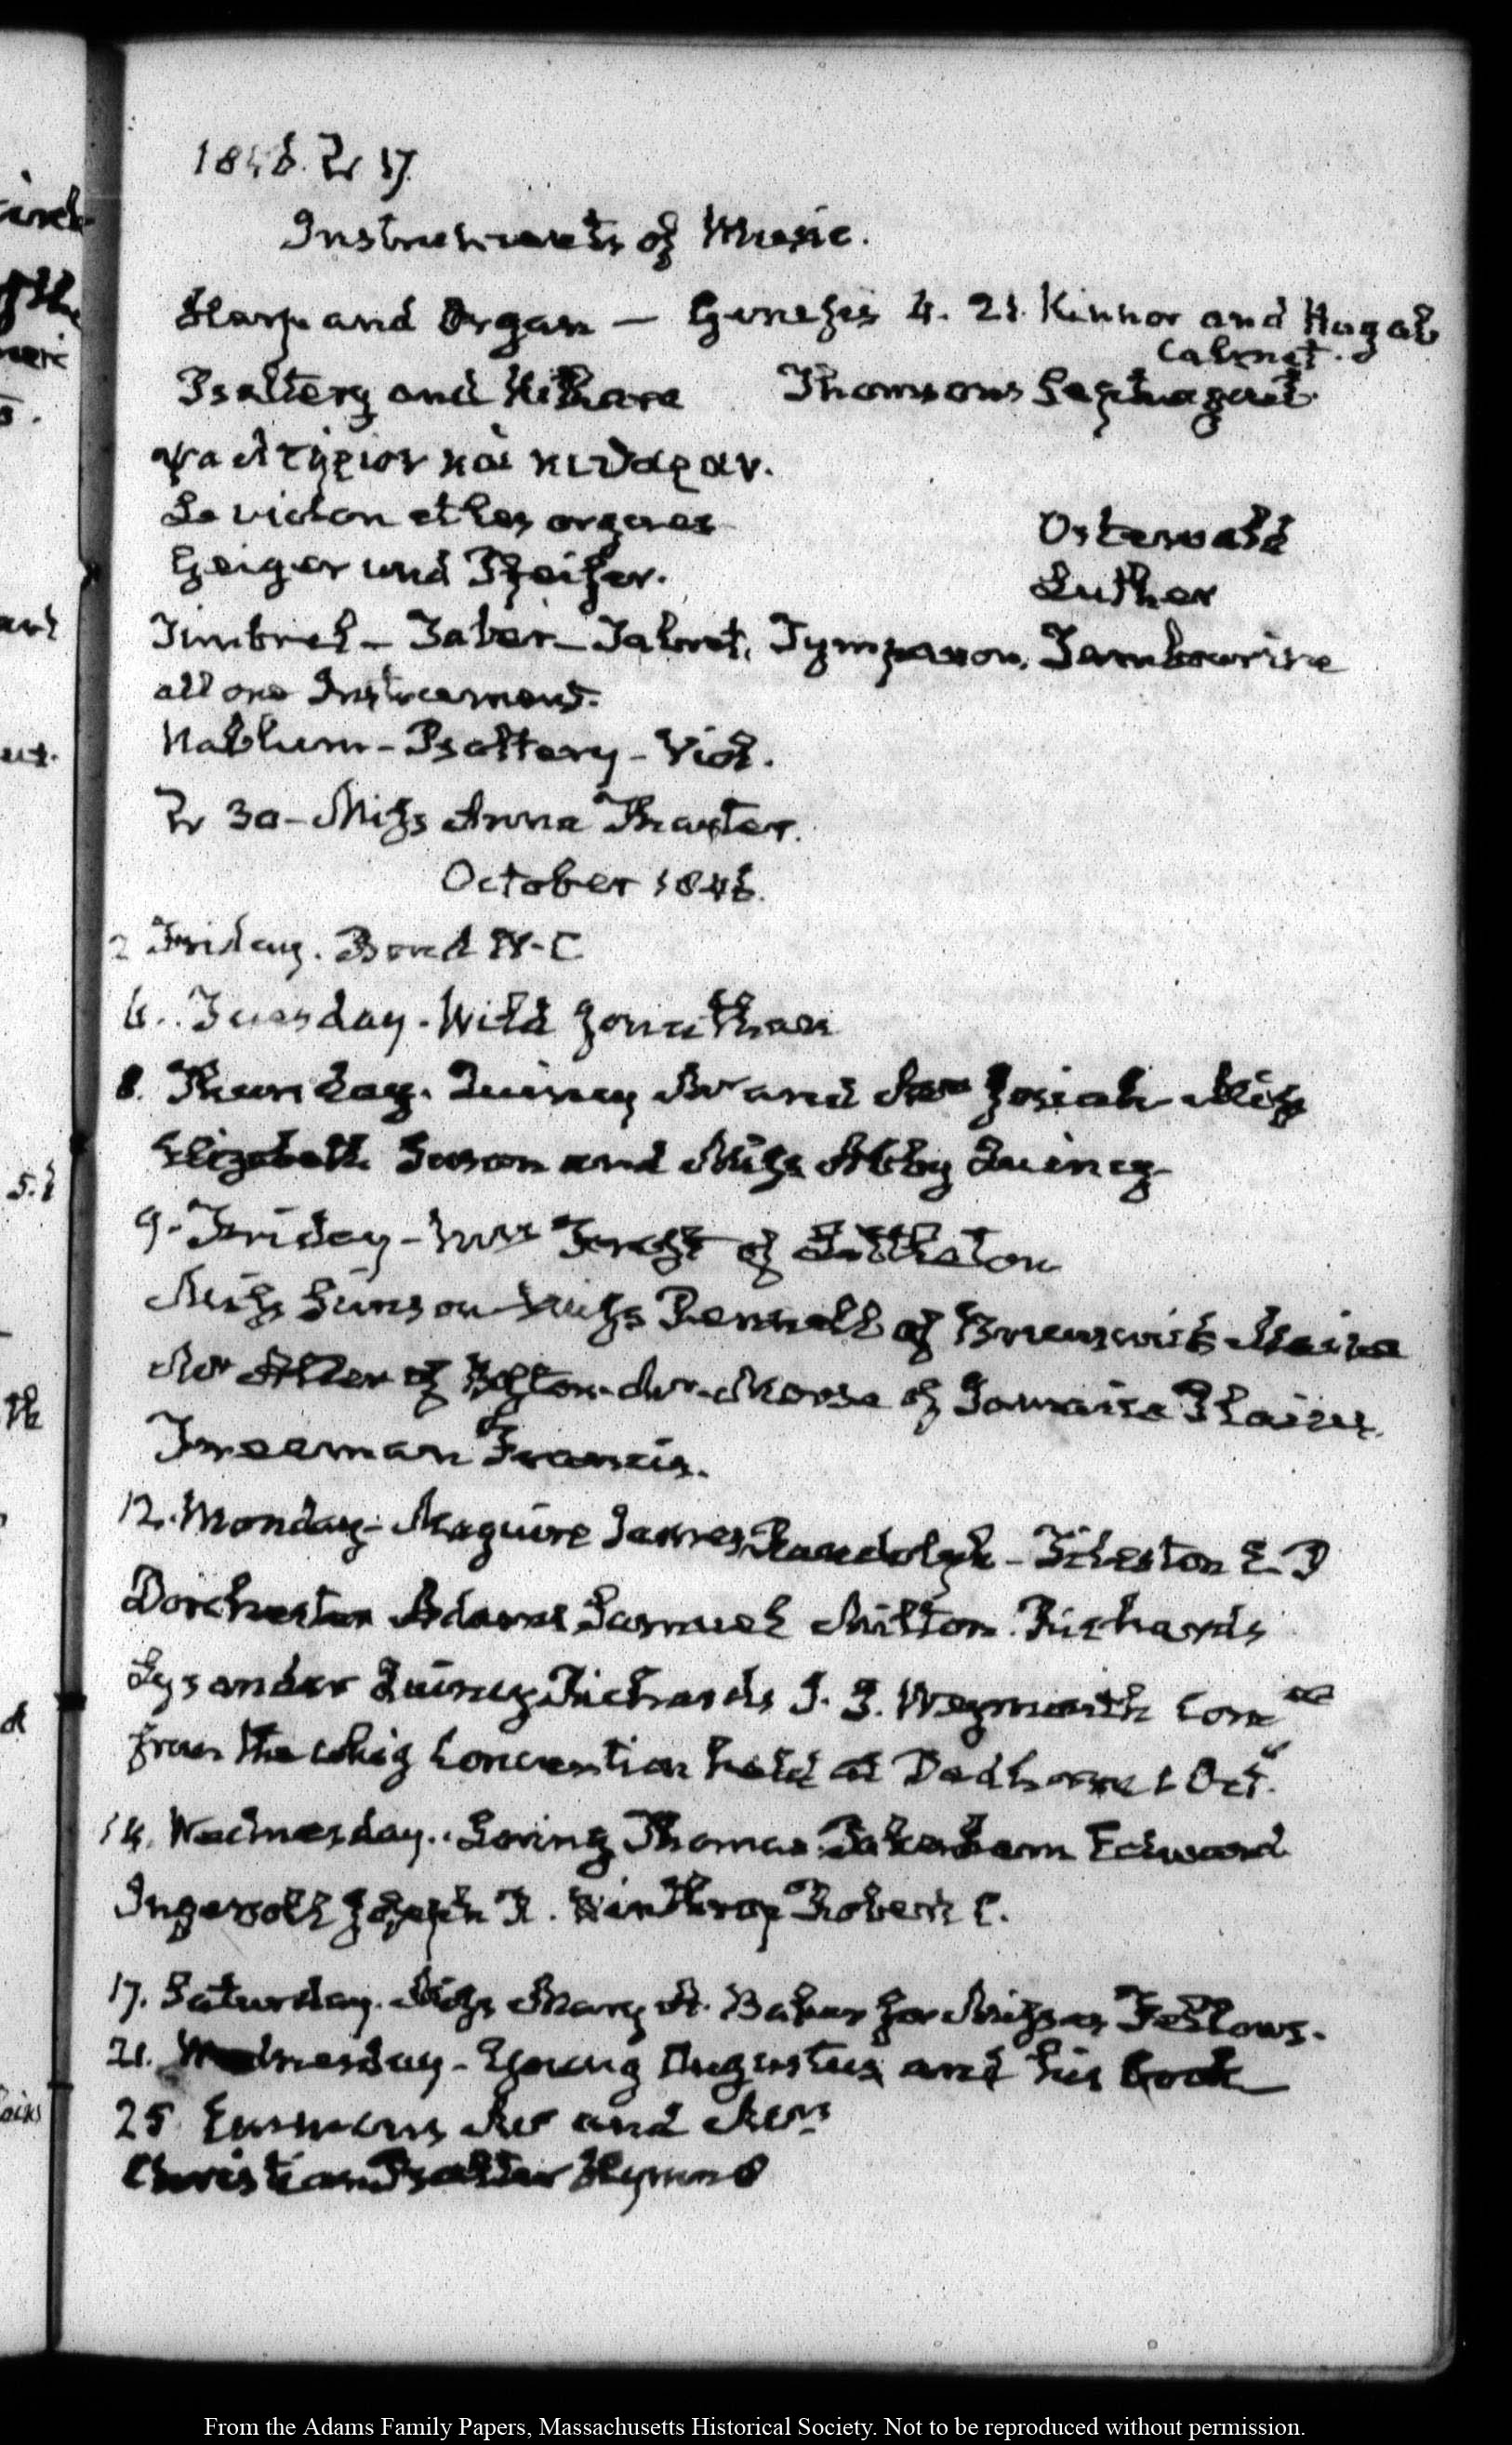 1846. IV 17.
Instruments of Music.
Harp and Organ — Genesis 4. 21. Kinnor and Hugab
Calmet.
Psaltery and Kithara Thomsons Septuagint.
ψαλτήριον καὶ κιθάραν.
Le violon et les orgues Osterwald
Geiger und Pfeifer. Luther
Timbrel – Taber – Tabret, Tympanon, Tambourine
all one Instrument.
Nablum – Psaltery – Viol.
30 – Miss Anna Thaxter.
October 1846.
2 Friday. Bond W–C
6. Tuesday. Wild Jonathan
8. Thursday. Quincy Mr and Mrs Josiah Miss
Elizabeth Susan and Miss Abby Quincy
9. Friday – Mrs of Littleton
Miss Miss of Brunswick Maine
Mr of Bolton Mr Morse of Jamaica Plains.
Freeman Francis.
12. Monday. Maguire James Randolph – Tileston E. P
Dorchester Adams Samuel Milton. Richards
Lysander Quincy Richards J. J. Weymouth Comtee
from the Whig Convention held at Dedham Oct.
14. Wednesday. Loring Thomas Edward
Ingersoll Joseph R. Winthrop Robert C.
17. Saturday. Miss Mary A. Baker for Misses Fellows.
21. Wednesday – Young Augustus and his book
25 Emmons Mr and Mrs
Christian Psalter Hymns
From the Adams Family Papers, Massachusetts Historical Society. Not to be reproduced without permission.